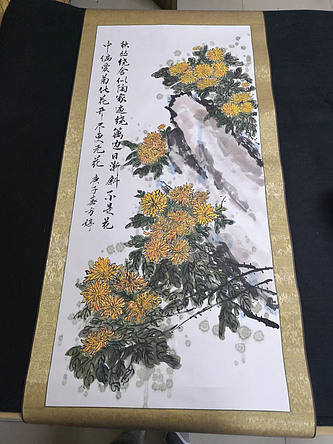 秋丛绕舍似陶家遍绕篱边日渐斜不是花
中偏爱菊此花开尽更无花 庚子方婷